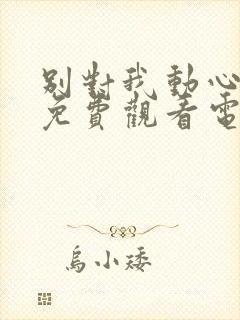 別對我動心
免費觀看電
烏小矮